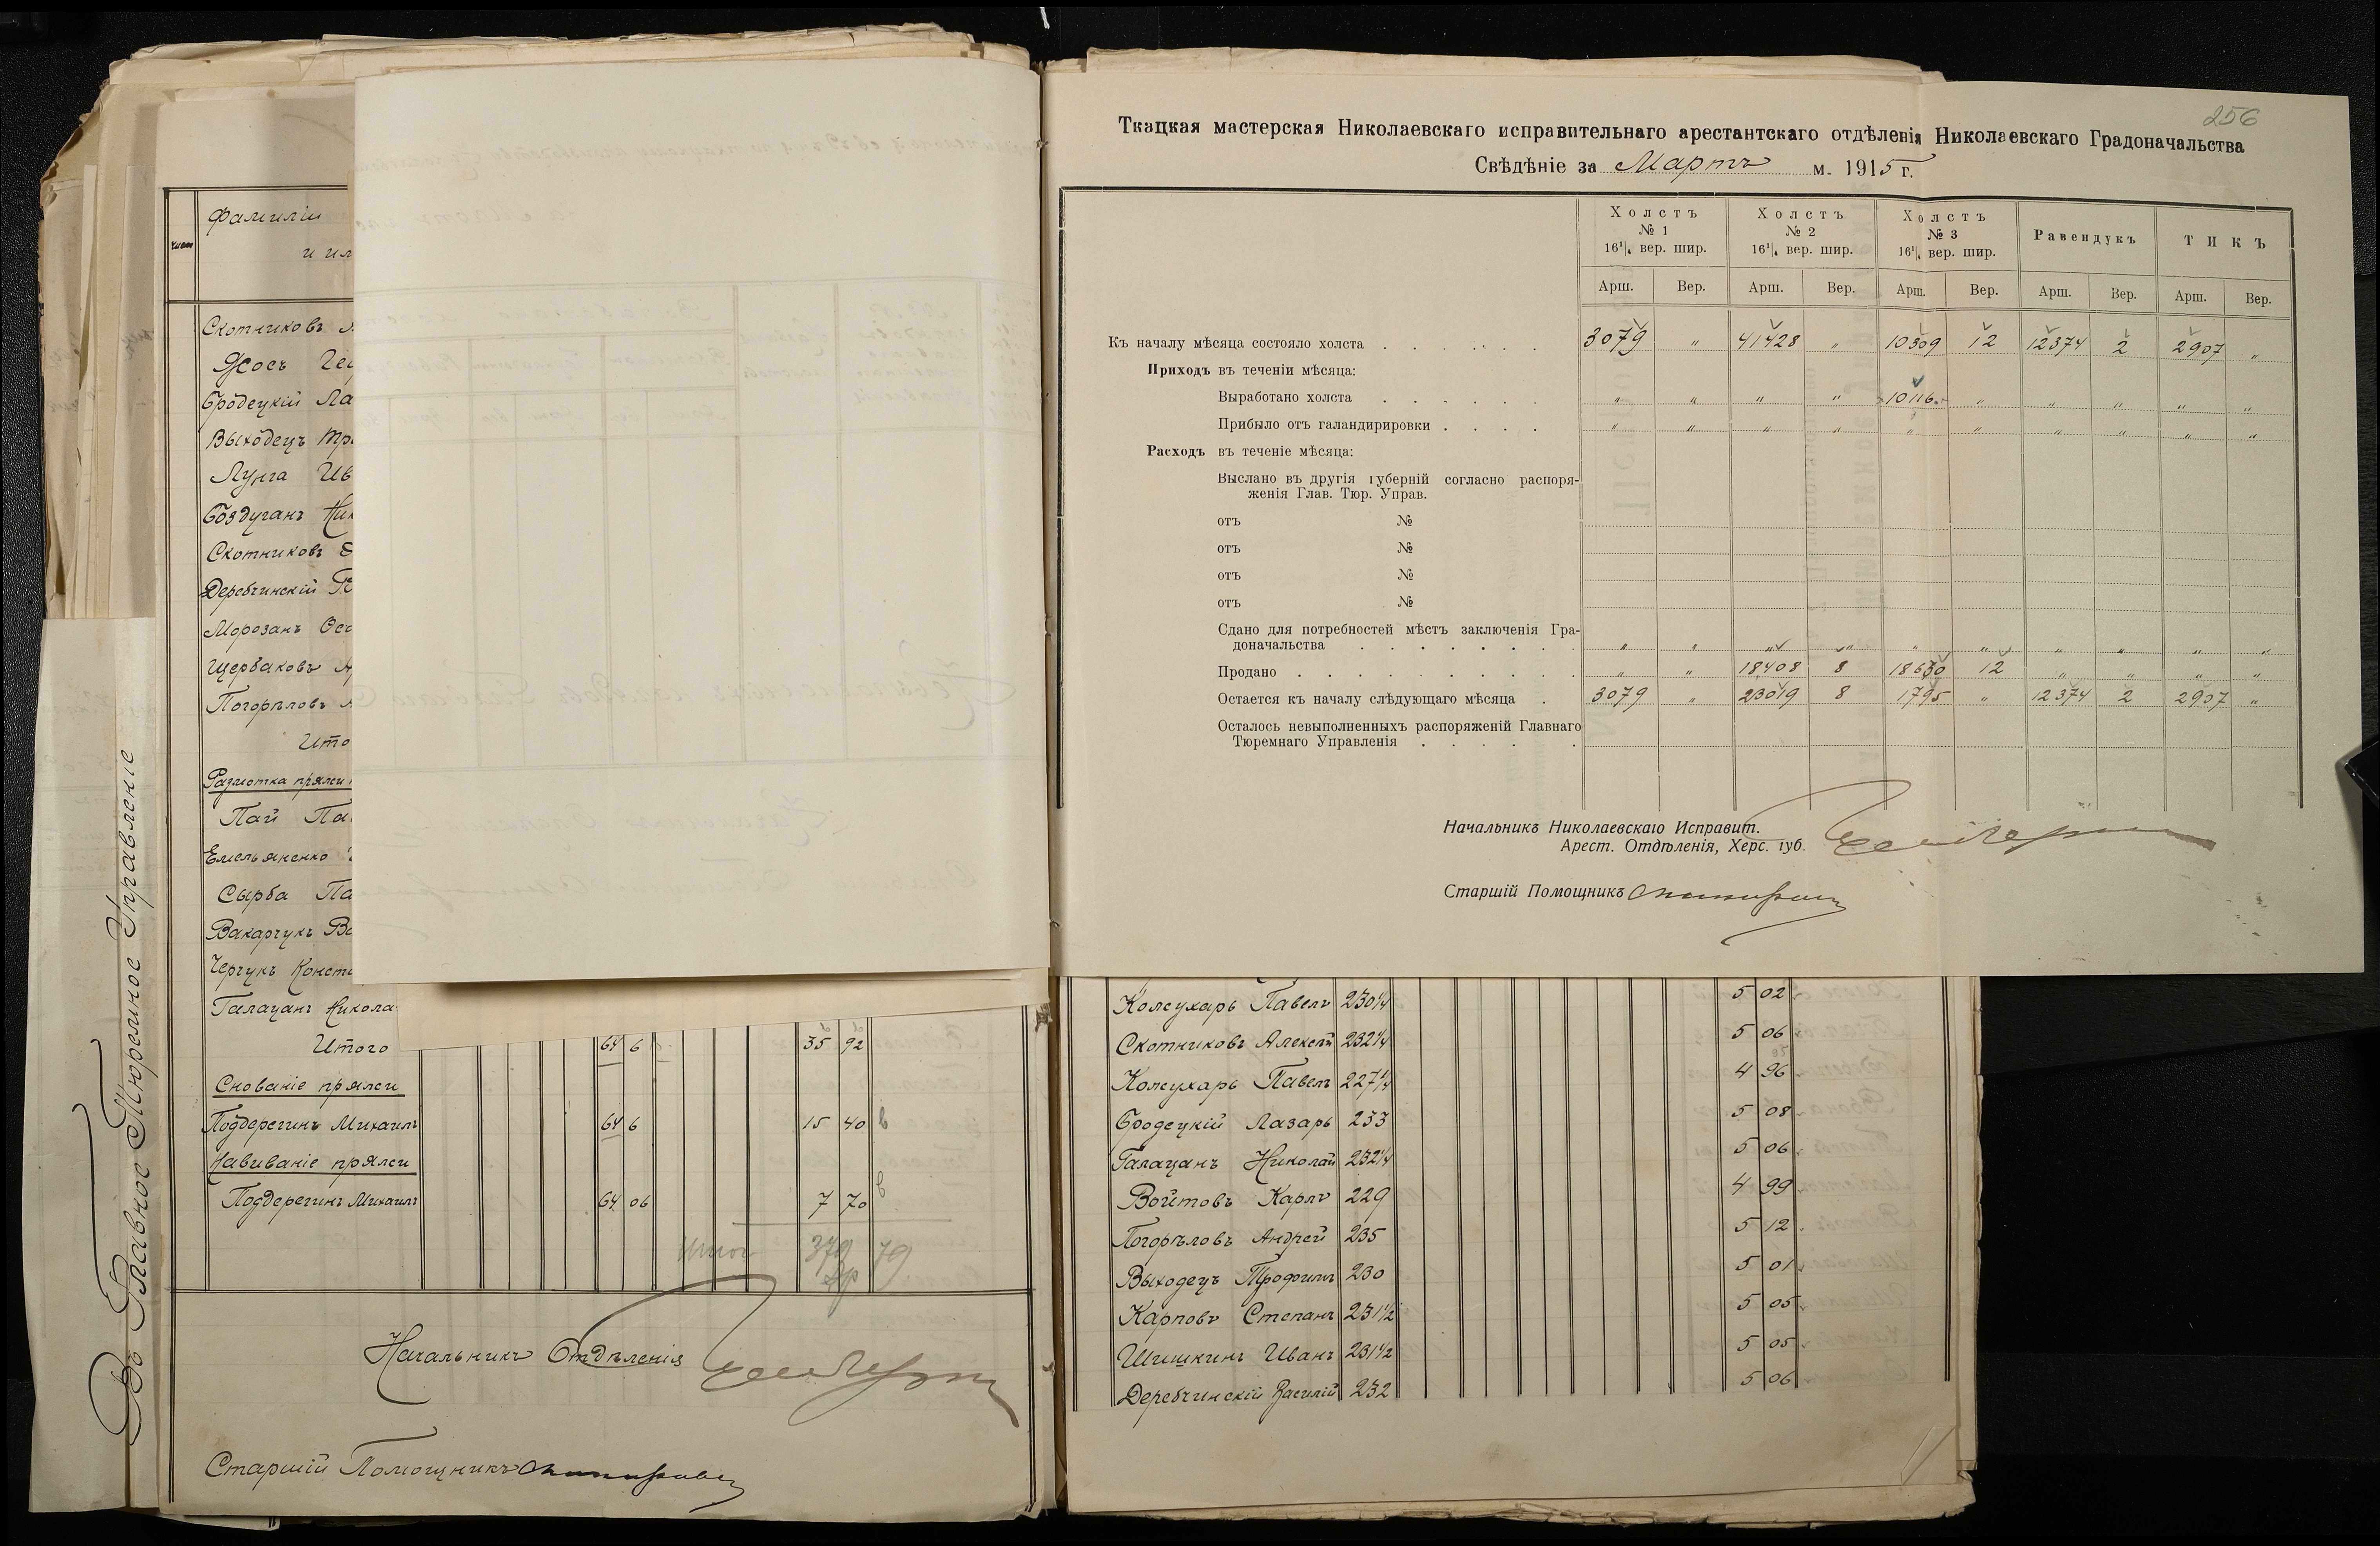 Въ Главное Тюремное Управленіе
Фамиліи
и им
Скотниковъ
Бродецкій Ла
Выходецъ Тр
Лунга Ив
Боздуганъ Ник
Скотниковъ
Деребчинскій
Морозанъ
Щербаковъ
Погорѣловъ
Ито
Размотка пряжи
Пай Па
Емельяненко
Сырба Па
Вакарчукъ Ва
Черчукъ Конста
Галацанъ Никола
Итого 64 6 35 92
Снованіе пряжи
Поддерегинъ Михаилъ 64 6 15 40 в
Навиваніе пряжи
Поддерегинъ Михаилъ 64 06 7 70 в
Итого 379 79
Начальникъ Отдѣленія
Старшій Помощникъ
256
Ткацкая мастерская Николаевскаго исправительнаго арестантскаго отдѣленія Николаевскаго Градоначальства
Свѣдѣніе за Мартъ м. 1915 г.
Холстъ № 1 16¼ вер. шир. Холстъ № 2 16¼ вер. шир. Холстъ № 3 16¼ вер. шир. Равендукъ ТИКЪ
Арш. Вер. Арш. Вер. Арш. Вер. Арш. Вер. Арш. Вер.
Къ началу мѣсяца состояло холста . . . . . . 3079 " 41428 " 10309 12 12374 2 2907 "
Приходъ въ теченіи мѣсяца:
Выработано холста . . . . . . " " " " 10116 " " " " "
Прибыло отъ галандирировки . . . . " " " " " " " " " "
Расходъ въ теченіе мѣсяца:
Выслано въ другія губерній согласно распоря-
женія Глав. Тюр. Управ.
отъ №
отъ №
отъ №
отъ №
Сдано для потребностей мѣстъ заключенія Гра-
доначальства . . . . . . . . " " " " " " " " " "
Продано . . . . . . . . . . " " 18408 8 18630 12 " " " "
Остается къ началу слѣдующаго мѣсяца . 3079 " 23019 8 1795 " 12374 2 2907 "
Осталось невыполненныхъ распоряженій Главнаго
Тюремнаго Управленія . . . . .
Начальникъ Николаевскаго Исправит.
Арест. Отдѣленія, Херс. губ.
Старшій Помощникъ
Кожухарь Павелъ 230¼ 5 02
Скотниковъ Алексѣй 232¼ 5 06
Кожухарь Павелъ 227¼ 4 96
Бродецкій Лазарь 233 5 08
Галацанъ Николай 232¼ 5 06
Войтовъ Карлъ 229 4 99
Погорѣловъ Андрей 235 5 12
Выходецъ Трофимъ 230 5 01
Карповъ Степанъ 231½ 5 05
Шишкинъ Иванъ 231½ 5 05
Деребчинскій Василій 232 5 06